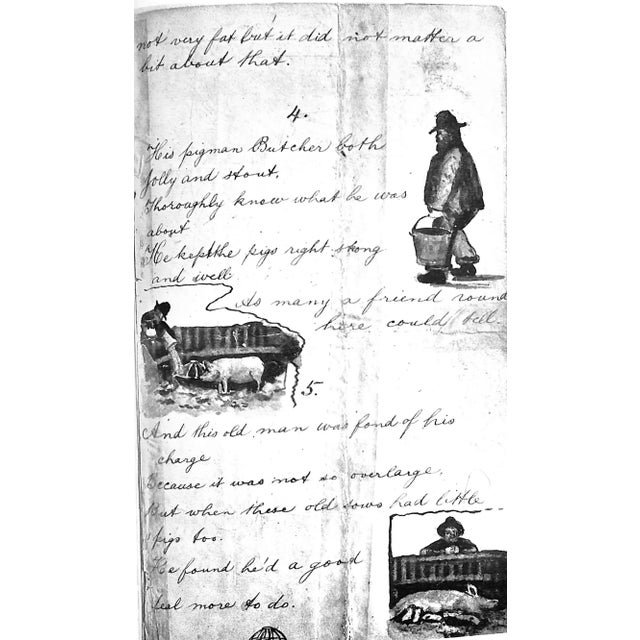 not very fat but it did not matter a
bit about that.
4.
His pigman Butcher both
jolly and stout.
Thoroughly know what he was
about
He kept the pigs right strong
and well
As many a friend round
here could tell.
5.
And this old man was fond of his
charge
Because it was not so overlarge.
But when these old sows had little
pigs too.
He found he'd a good
deal more to do.